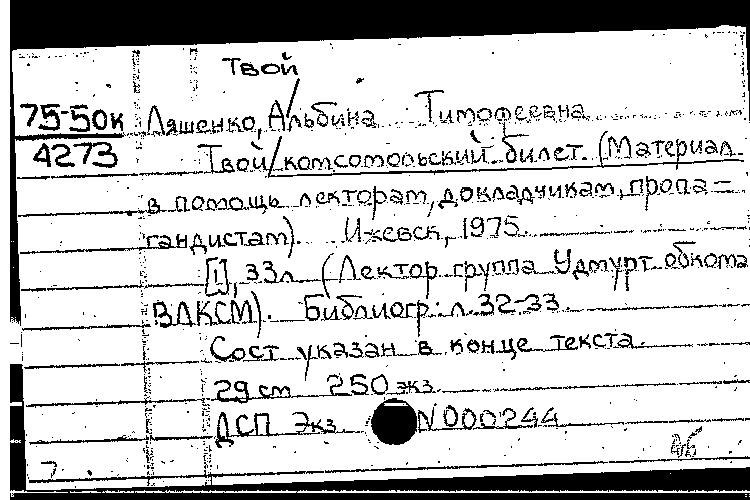 Твой
75-50к Ляшенко, Альбина Тимофеевна
4273 Твой/комсомольский билет. (Материал
в помощь лекторам, докладчикам, пропа=
гандистам). Ижевск, 1975.
[1], 33л (Лектор группа Удмурт. обкома
ВЛКСМ). Библиогр: л. 32-33.
Сост указан в конце текста.
29 cm 250 экз.
ДСП Экз. N 000244